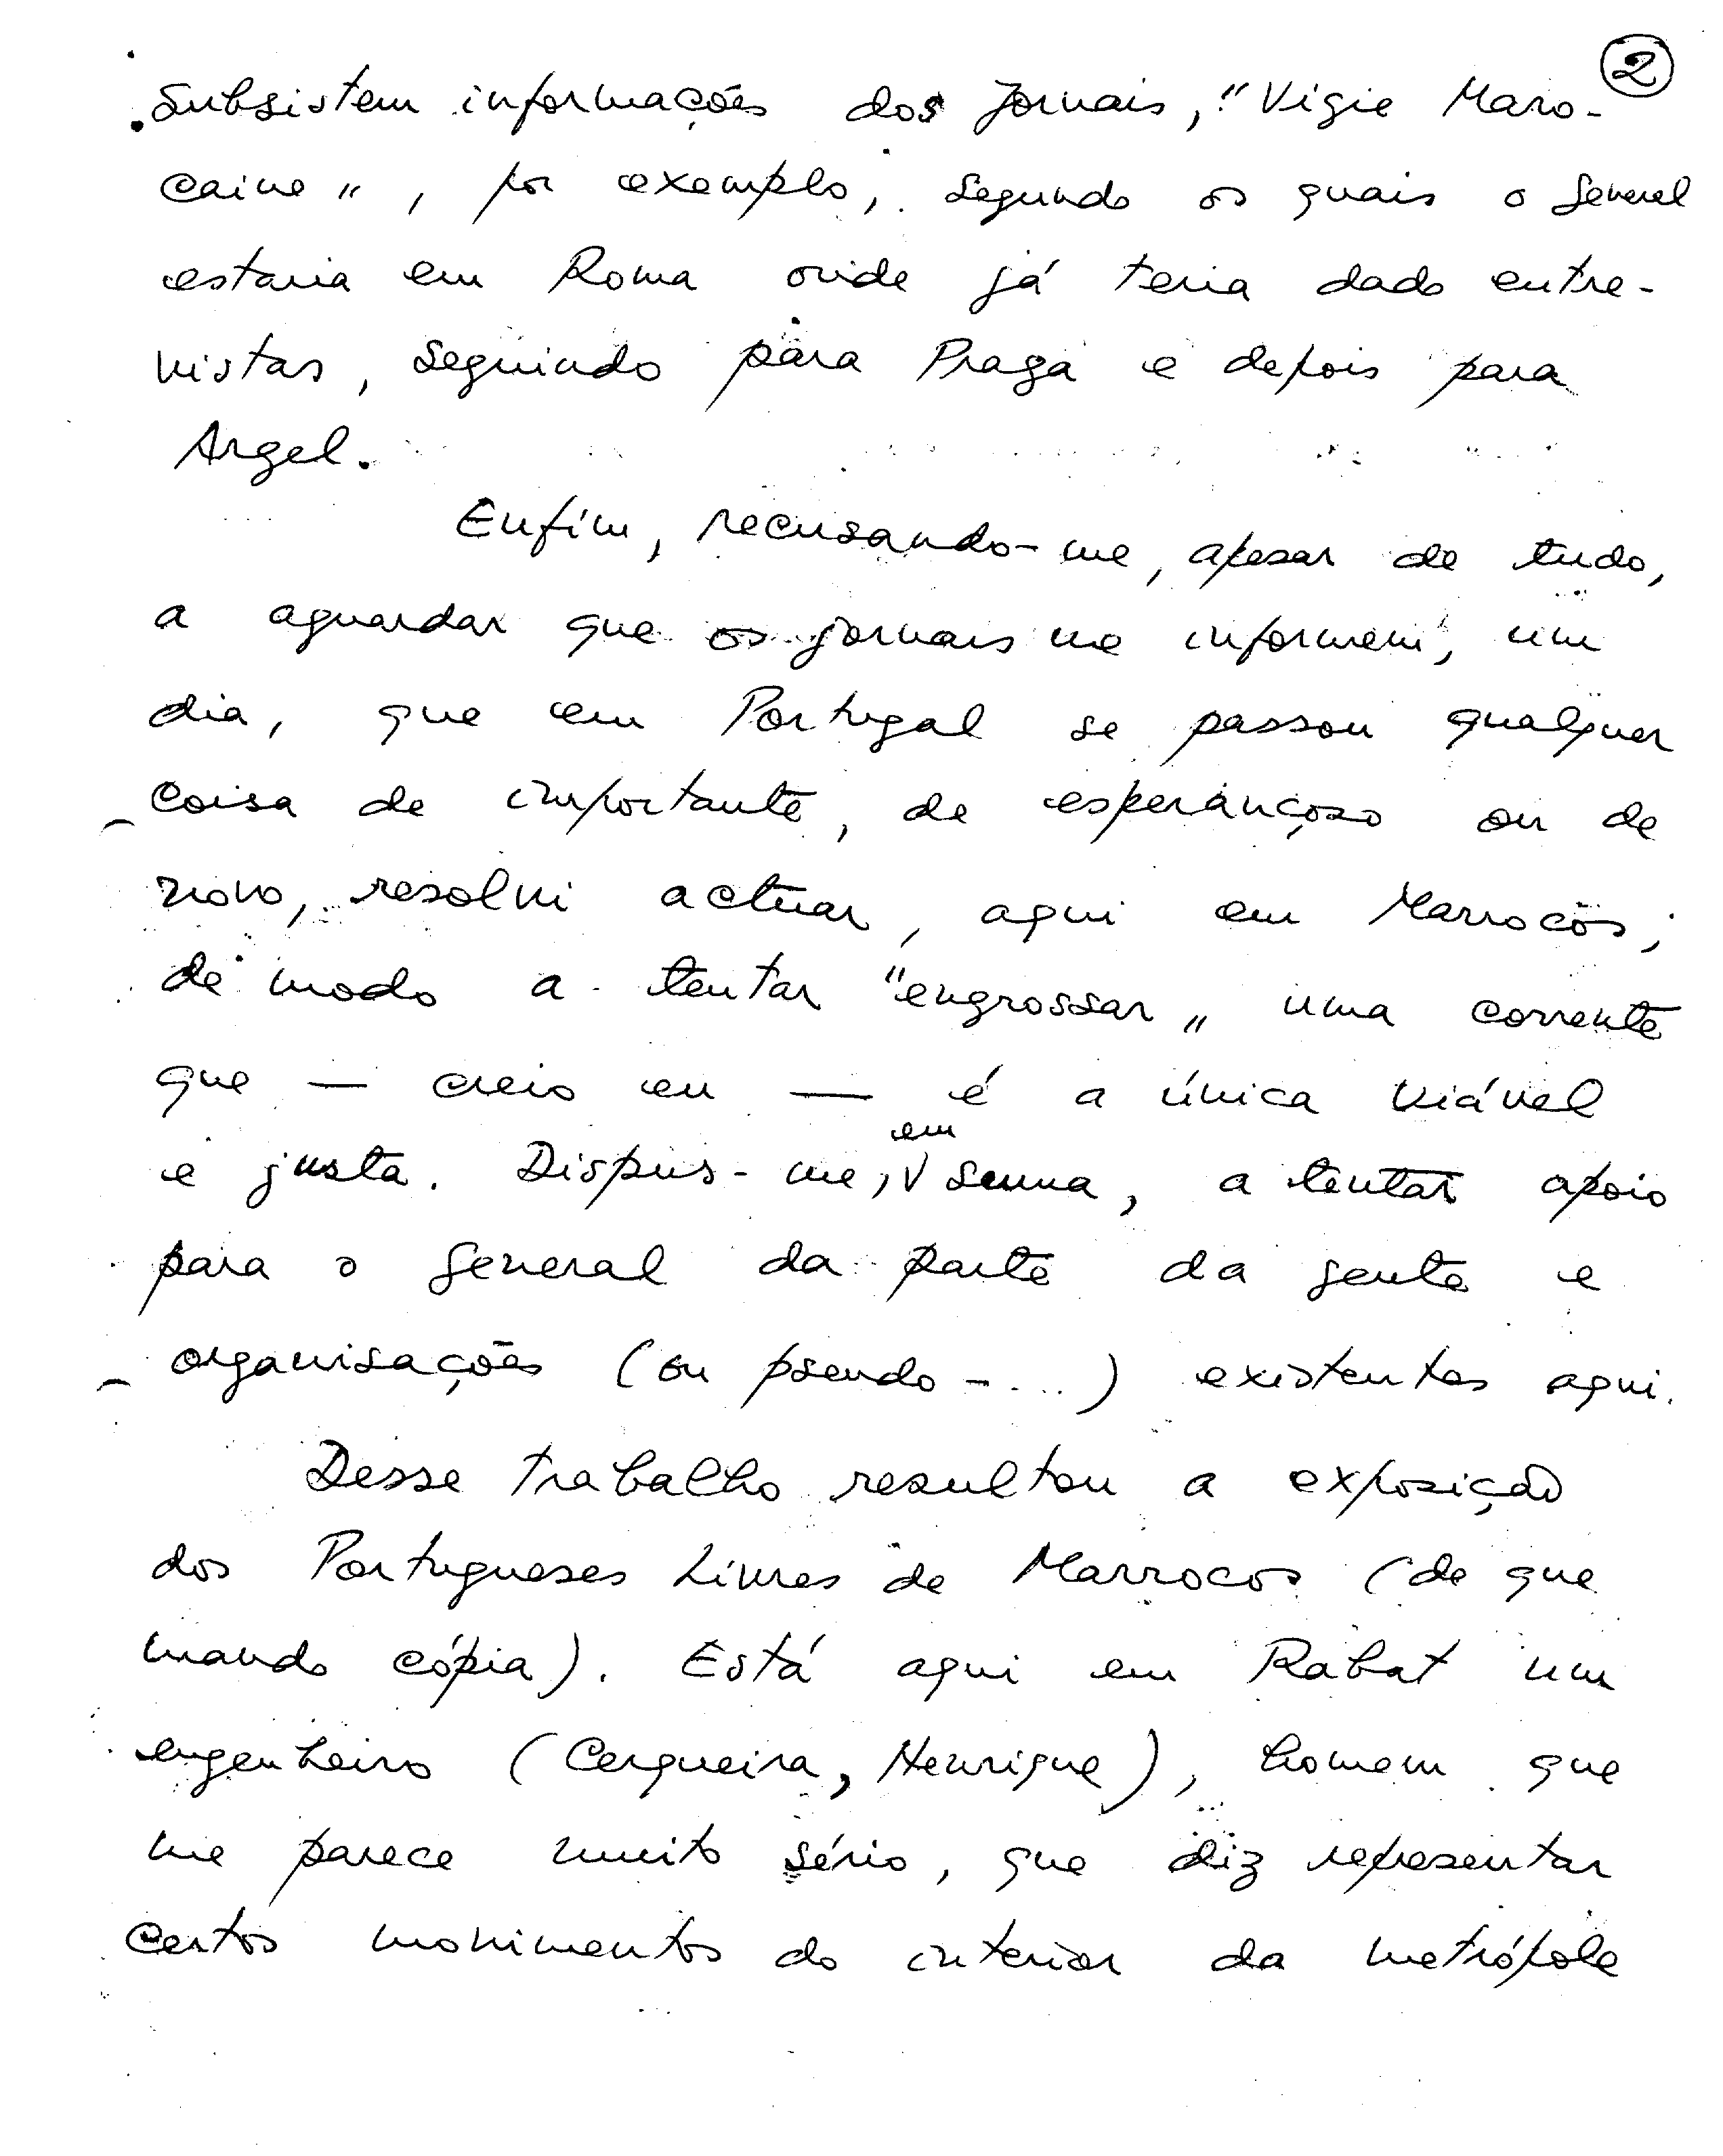 2
Subsistem informações dos Jornais, "Vigie Maro-
caine", por exemplo, segundo os quais o General
estaria em Roma onde já teria dado entre-
vistas, seguindo para Praga e depois para
Argel.
Enfim, recusando-me, apesar de tudo,
a aguardar que os jornais me informem, um
dia, que em Portugal se passou qualquer
coisa de importante, de esperançoso ou de
novo, resolvi actuar, aqui em Marrocos;
de modo a tentar "engrossar" uma corrente
que — creio eu — é a única viável
e justa. Dispus-me, em suma, a tentar apoio
para o General da parte da gente e
organisações (ou pseudo-...) existentes aqui.
Desse trabalho resultou a exposição
dos Portugueses Livres de Marrocos (de que
mando cópia). Está aqui em Rabat um
engenheiro (Cerqueira, Henrique), homem que
me parece muito sério, que diz representar
certos movimentos do interior da metrópole